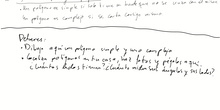 un polígono es simple si
un polígono es complejo si se corta consigo mismo
Deberes:
• Dibuja aquí un polígono simple y uno complejo
• Localiza polígonos en tu casa, haz fotos y pégalas aquí.
¿Cuántos lados tienen? ¿Cuánto miden sus ángulos y sus lados?